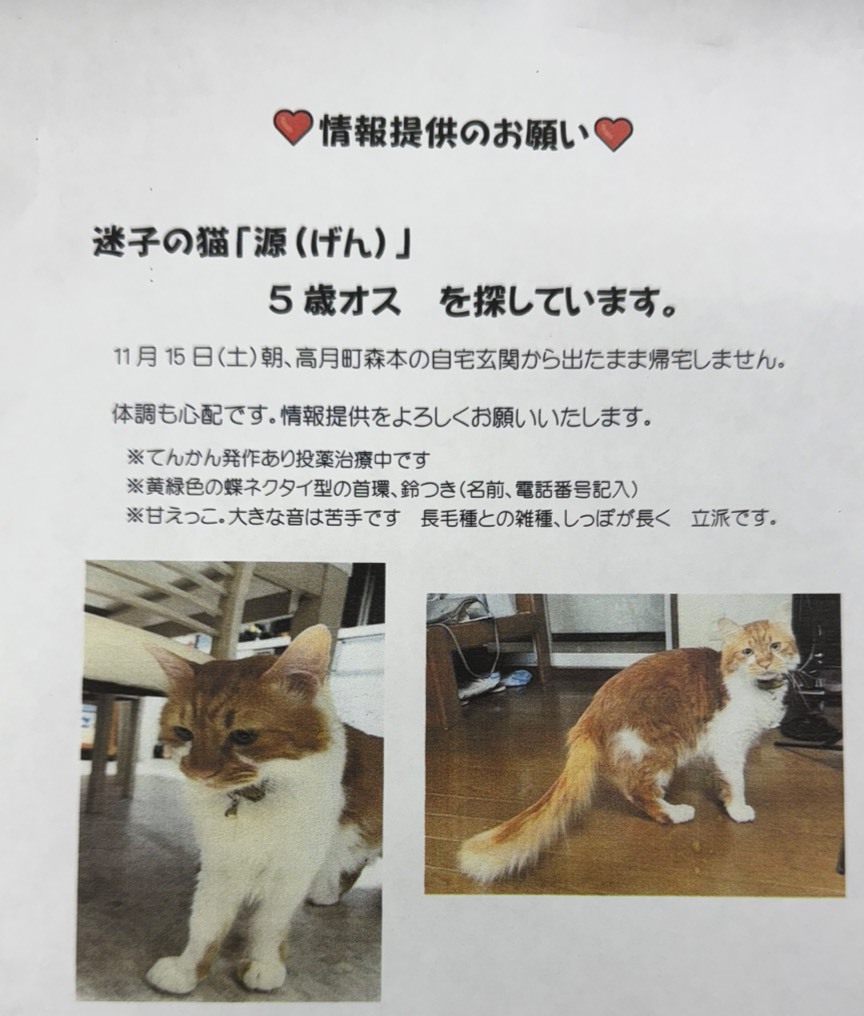 ❤情報提供のお願い❤
迷子の猫「源(げん)」
5歳オス　を探しています。
11月15日(土)朝、高月町森本の自宅玄関から出たまま帰宅しません。
体調も心配です。情報提供をよろしくお願いいたします。
※てんかん発作あり投薬治療中です
※黄緑色の蝶ネクタイ型の首環、鈴つき(名前、電話番号記入)
※甘えっこ。大きな音は苦手です　長毛種との雑種、しっぽが長く　立派です。